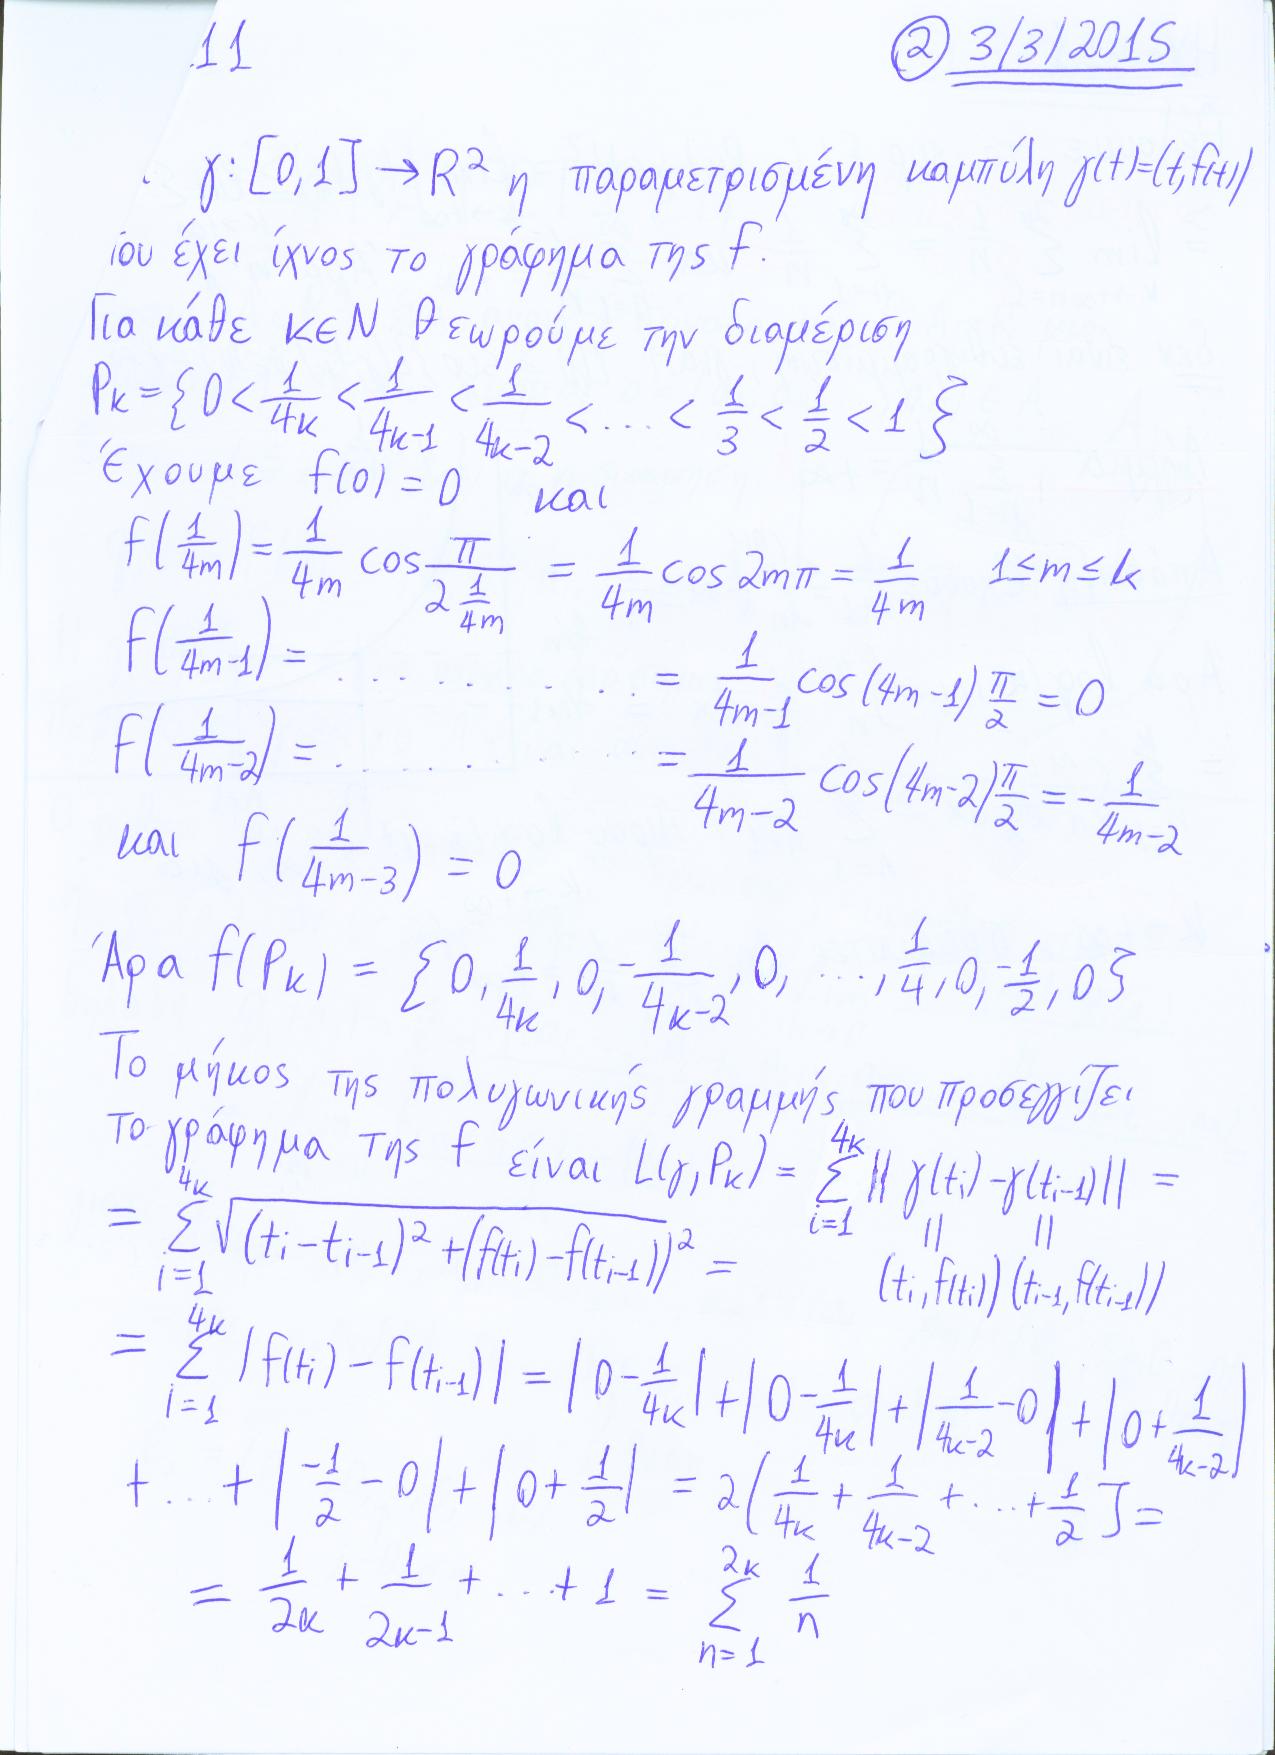 11 ② 3/3/2015
γ: [0,1] → R² η παραμετρισμένη καμπύλη γ(t)=(t,f(t))
ου έχει ίχνος το γράφημα της f.
Για κάθε κ∈N θεωρούμε την διαμέριση
Pκ = { 0 < 1/4κ < 1/(4κ-1) < 1/(4κ-2) < ... < 1/3 < 1/2 < 1 }
Έχουμε f(0) = 0 και
f(1/4m) = 1/4m cos π/(2 1/4m) = 1/4m cos 2mπ = 1/4m 1≤m≤k
f(1/(4m-1)) = . . . . . . . . . = 1/(4m-1) cos(4m-1) π/2 = 0
f(1/(4m-2)) = . . . . . . . . . = 1/(4m-2) cos(4m-2) π/2 = - 1/(4m-2)
και f(1/(4m-3)) = 0
Άρα f(Pκ) = { 0, 1/4κ, 0, -1/(4κ-2), 0, ..., 1/4, 0, -1/2, 0 }
Το μήκος της πολυγωνικής γραμμής που προσεγγίζει
το γράφημα της f είναι L(γ, Pκ) = Σ_{i=1}^{4κ} || γ(ti) - γ(ti-1) || =
= Σ_{i=1}^{4κ} √(ti - ti-1)² + (f(ti) - f(ti-1))² = (ti, f(ti)) (ti-1, f(ti-1))
= Σ_{i=1}^{4κ} | f(ti) - f(ti-1) | = | 0 - 1/4κ | + | 0 - 1/4κ | + | 1/(4κ-2) - 0 | + | 0 + 1/(4κ-2) |
+ ... + | -1/2 - 0 | + | 0 + 1/2 | = 2( 1/4κ + 1/(4κ-2) + ... + 1/2 ] =
= 1/2κ + 1/(2κ-1) + ... + 1 = Σ_{n=1}^{2κ} 1/n